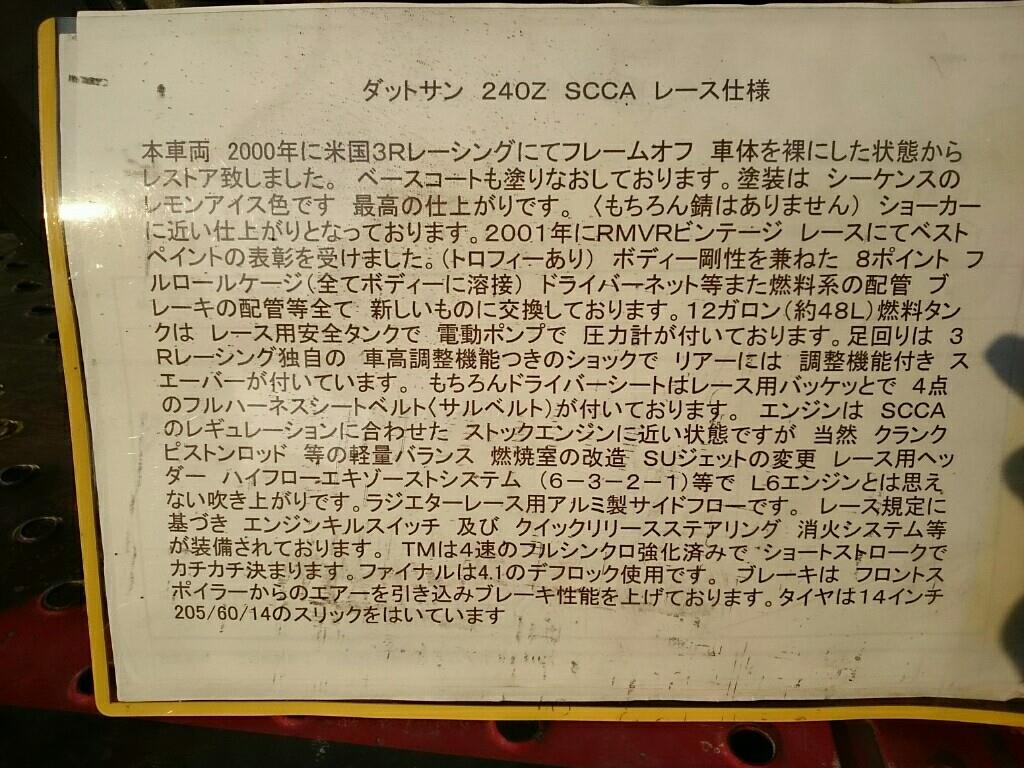 ダットサン 240Z SCCA レース仕様
本車両 2000年に米国3Rレーシングにてフレームオフ 車体を裸にした状態から
レストア致しました。 ベースコートも塗りなおしております。塗装は シーケンスの
レモンアイス色です 最高の仕上がりです。〈もちろん錆はありません） ショーカー
に近い仕上がりとなっております。2001年にRMVRビンテージ レースにてベスト
ペイントの表彰を受けました。（トロフィーあり） ボディー剛性を兼ねた 8ポイント フ
ルロールケージ（全てボディーに溶接） ドライバーネット等また燃料系の配管 ブ
レーキの配管等全て 新しいものに交換しております。12ガロン（約48L）燃料タン
クは レース用安全タンクで 電動ポンプで 圧力計が付いております。足回りは 3
Rレーシング独自の 車高調整機能つきのショックで リアーには 調整機能付き ス
エーバーが付いています。 もちろんドライバーシートはレース用バッケッとで 4点
のフルハーネスシートベルト〈サルベルト）が付いております。 エンジンは SCCA
のレギュレーションに合わせた ストックエンジンに近い状態ですが 当然 クランク
ピストンロッド 等の軽量バランス 燃焼室の改造 SUジェットの変更 レース用ヘッ
ダー ハイフローエキゾーストシステム （6－3－2－1）等で L6エンジンとは思え
ない吹き上がりです。ラジエターレース用アルミ製サイドフローです。 レース規定に
基づき エンジンキルスイッチ 及び クイックリリースステアリング 消火システム等
が装備されております。 TMは4速のフルシンクロ強化済みで ショートストロークで
カチカチ決まります。ファイナルは4.1のデフロック使用です。 ブレーキは フロントス
ポイラーからのエアーを引き込みブレーキ性能を上げております。タイヤは14インチ
205/60/14のスリックをはいています